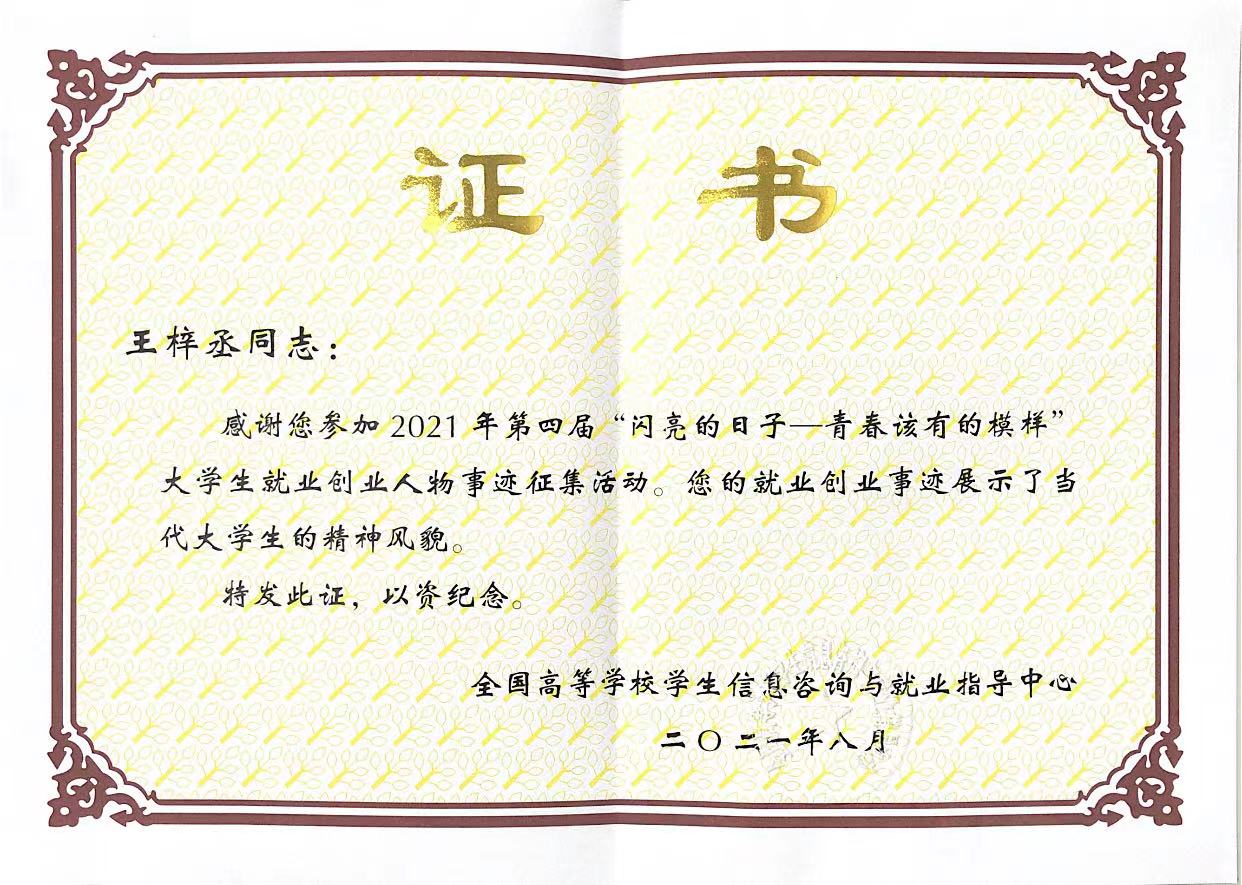 证 书
王梓丞同志：
感谢您参加 2021 年第四届“闪亮的日子—青春该有的模样”
大学生就业创业人物事迹征集活动。您的就业创业事迹展示了当
代大学生的精神风貌。
特发此证，以资纪念。
全国高等学校学生信息咨询与就业指导中心
二〇二一年八月